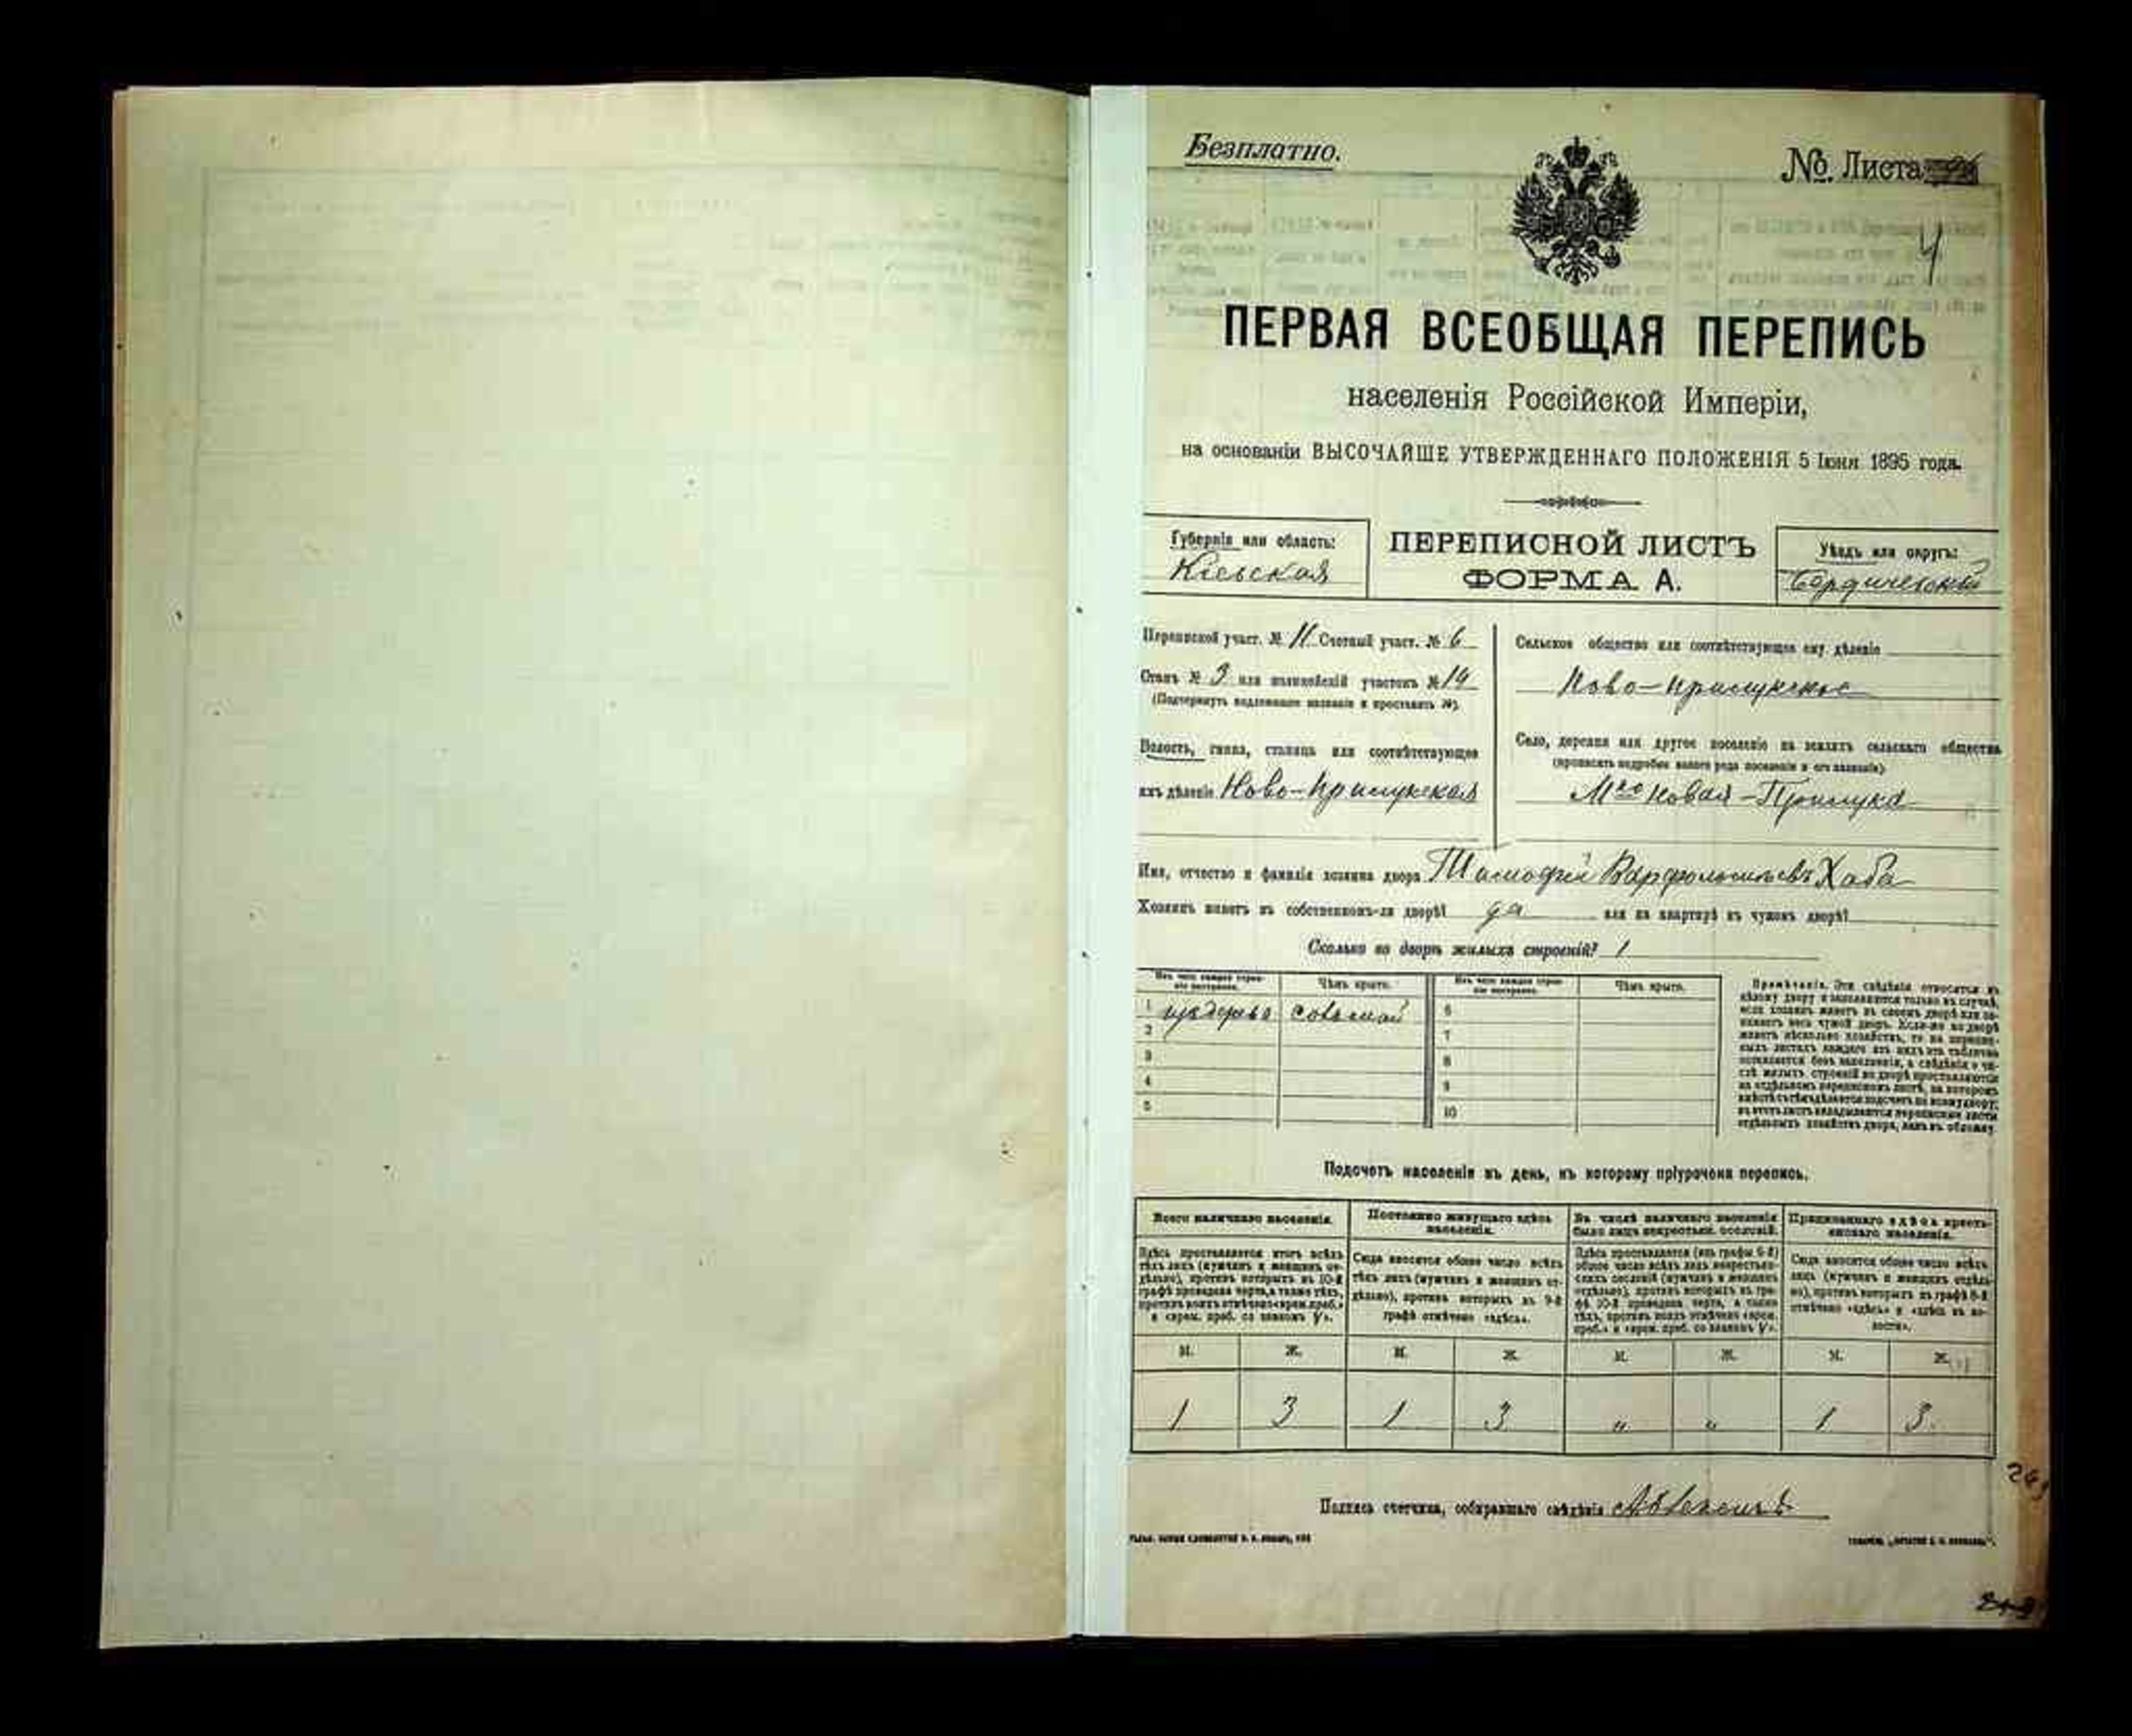 Безплатно.
№ Листа
4
ПЕРВАЯ ВСЕОБЩАЯ ПЕРЕПИСЬ
населенія Россійской Имперіи,
на основаніи ВЫСОЧАЙШЕ УТВЕРЖДЕННАГО ПОЛОЖЕНІЯ 5 Іюня 1895 года.
Губернія или область:
Кіевская
ПЕРЕПИСНОЙ ЛИСТЪ
ФОРМА А.
Уѣздъ или округъ:
Бердичевскій
Переписной участ. № 11 Счетный участ. № 6
Станъ № 3 или полицейскій участокъ № 14
(Подчеркнуть надлежащее названіе и проставить №).
Волость, гмина, станица или соотвѣтствующее
имъ дѣленіе Ново-Прилукская
Сельское общество или соотвѣтствующее ему дѣленіе
Ново-Прилукское
Село, деревня или другое поселеніе на земляхъ сельскаго общества
(прописать подробно какого рода поселеніе и его названіе).
М-ко Новая-Прилука
Имя, отчество и фамилія хозяина двора Тимофей Варфоломеевъ Хаба
Хозяинъ живетъ въ собственномъ-ли дворѣ? да или на квартирѣ въ чужомъ дворѣ?
Сколько во дворѣ жилыхъ строеній? 1
Изъ чего каждое строеніе построено.
Чѣмъ крыто.
Изъ чего каждое строеніе построено.
Чѣмъ крыто.
1 изъ дерева соломой 6
2 7
3 8
4 9
5 10
Примѣчаніе. Эти свѣдѣнія относятся къ
цѣлому двору и заполняются только въ случаѣ,
если хозяинъ живетъ въ своемъ дворѣ или занимаетъ весь чужой дворъ. Если-же во дворѣ
живетъ нѣсколько хозяйствъ, то на переписныхъ листахъ каждаго изъ нихъ эта табличка
оставляется безъ заполненія, а свѣдѣнія о числѣ жилыхъ строеній во дворѣ проставляются
на отдѣльномъ переписномъ листѣ, на которомъ
вмѣстѣ съ тѣмъ дѣлается подсчетъ по всему двору;
въ этотъ листъ вкладываются переписные листы
отдѣльныхъ хозяйствъ двора, какъ въ обложку.
Подсчетъ населенія въ день, къ которому пріурочена перепись.
Всего наличнаго населенія.
Постоянно живущаго здѣсь населенія.
Въ числѣ наличнаго населенія было лицъ некрестьян. сословій.
Приписаннаго здѣсь крестьянскаго населенія.
Здѣсь проставляется итогъ всѣхъ
тѣхъ лицъ (мужчинъ и женщинъ отдѣльно), противъ которыхъ въ 10-й
графѣ проведена черта, а также тѣхъ,
противъ коихъ отмѣчено «врем. преб.»
и «врем. преб. со знакомъ V».
Сюда вносится общее число всѣхъ
тѣхъ лицъ (мужчинъ и женщинъ отдѣльно), противъ которыхъ въ 9-й
графѣ отмѣчено «здѣсь».
Здѣсь проставляется (изъ графы 6-й)
общее число всѣхъ лицъ некрестьянскихъ сословій (мужчинъ и женщинъ
отдѣльно), противъ которыхъ въ графѣ 10-й проведена черта, а также
тѣхъ, противъ коихъ отмѣчено «врем.
преб.» и «врем. преб. со знакомъ V».
Сюда вносится общее число всѣхъ
лицъ (мужчинъ и женщинъ отдѣльно), противъ которыхъ въ графѣ 8-й
отмѣчено «здѣсь» и «здѣсь въ волости».
М. Ж. М. Ж. М. Ж. М. Ж.
1 3 1 3 „ „ 1 3.
Подпись счетчика, собиравшаго свѣдѣнія